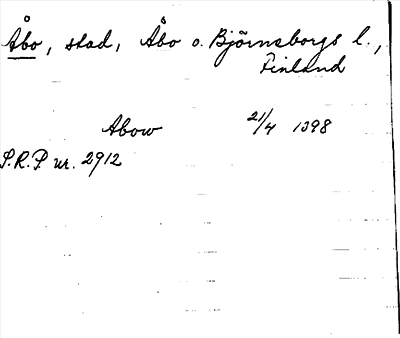 Åbo, stad, Åbo o. Björneborgs l.,
Finland
Abow 21/4 1398
S.R.P nr. 2912